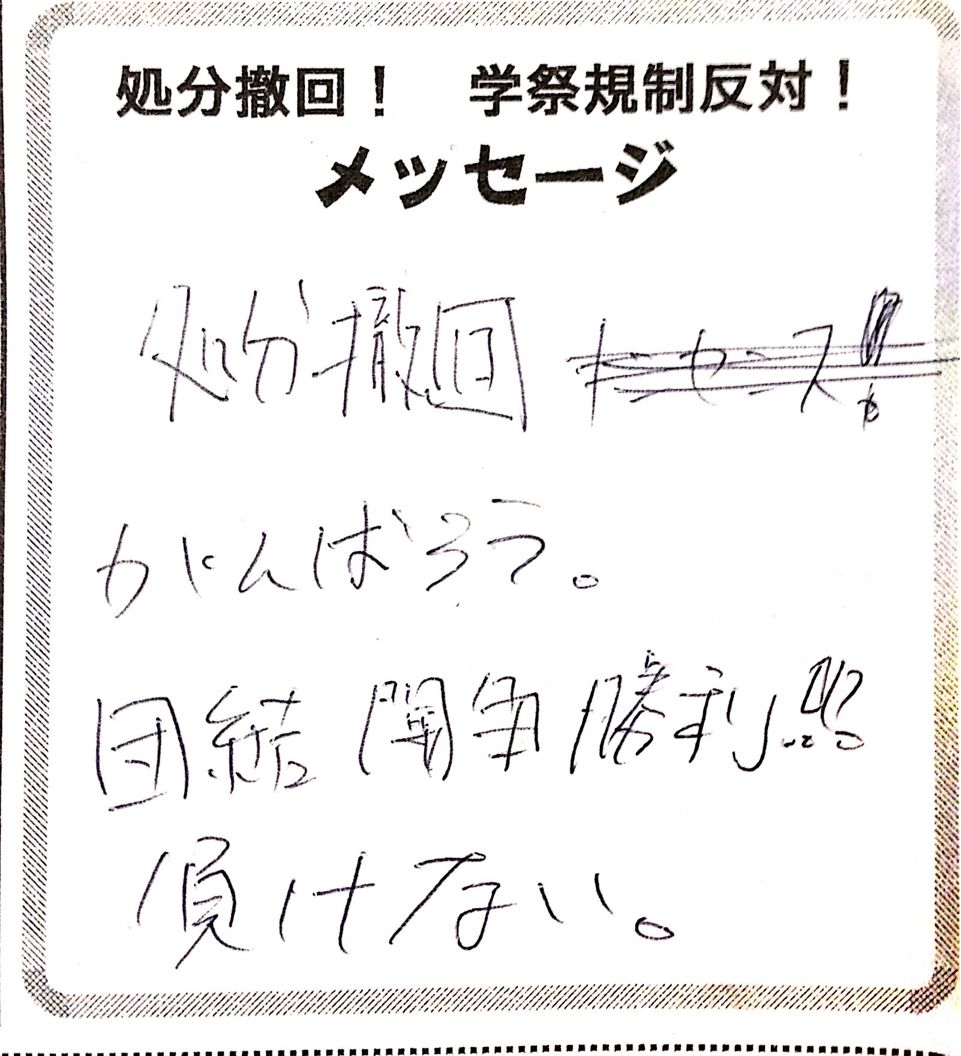 処分撤回！　学祭規制反対！
メッセージ
処分撤回
がんばろう。
団結 闘争 勝利!!!
負けない。